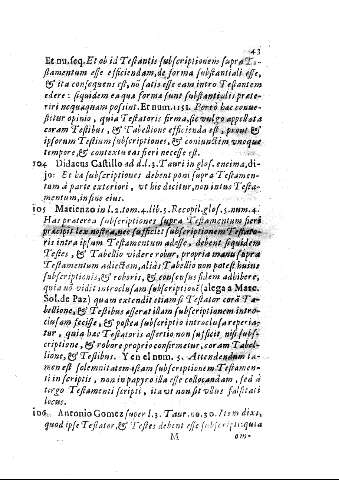 43
Et nu. seq. Et ob id Testantis subscriptionem supra Te-
stamentum esse efficiendam, de forma substantiali esse,
& ita consequens est, nõ satis esse eam intro Testamentum
edere: siquidem ea quæ forma sunt substantialis præte-
riri nequaquam possint. Et num. 1152. Porrò hæc conue-
stitur opinio, quia Testatoris firma, sic vulgo appellata
coram Testibus, & Tabellione efficienda est, prout &
ipsorum Testium subscriptiones, & coniunctim vnoque
tempore, & contextu eas fieri necesse est.
104 Didacus Castillo ad d. l. 3. Tauri in glos. encima, di-
jo: Et hæ subscriptiones debent poni supra Testamen-
tum à parte exteriori, vt hic dicitur, non intus Testa-
mentum, in suo eius.
105 Matienzo in l. 2. tom. 4. lib. 5. Recopil. glos. 5. num. 4.
Has præterea subscriptiones supra Testamentum fieri
præcipit lex nostra, nec sufficiet subscriptionem Testato-
ris intra ipsum Testamentum adesse, debent siquidem
Testes, & Tabellio videre robur, propria manu supra
Testamentum adiectam, aliàs Tabellio non potest huius
subscriptionis, & roboris, & consensus fidem adhibere,
quia nõ vidit introclusam subscriptionẽ (alega a Marc.
Sol. de Paz) quam extendit etiam si Testator corã Ta-
bellione, & Testibus asserat illam subscriptionem intro-
clusam fecisse, & postea subscriptio introclusa reperia-
tur, quia hæc Testatoris assertio non sufficit, nisi subscri-
ptione, & robore proprio confirmetur, coram Tabel-
lione, & Testibus. Y en el num. 5. Attendendum ta-
men est solemnitatem istam subscriptionem Testamen-
ti in scriptis, non in papyro illa esse collocandam, sed à
tergo Testamenti scripti, ita vt non sit vllus falsitati
locus.
106 Antonio Gomez super l. 3. Taur. nu. 30. Item dixi,
quod ipse Testator, & Testes debent esse subscripti: quia
M om-